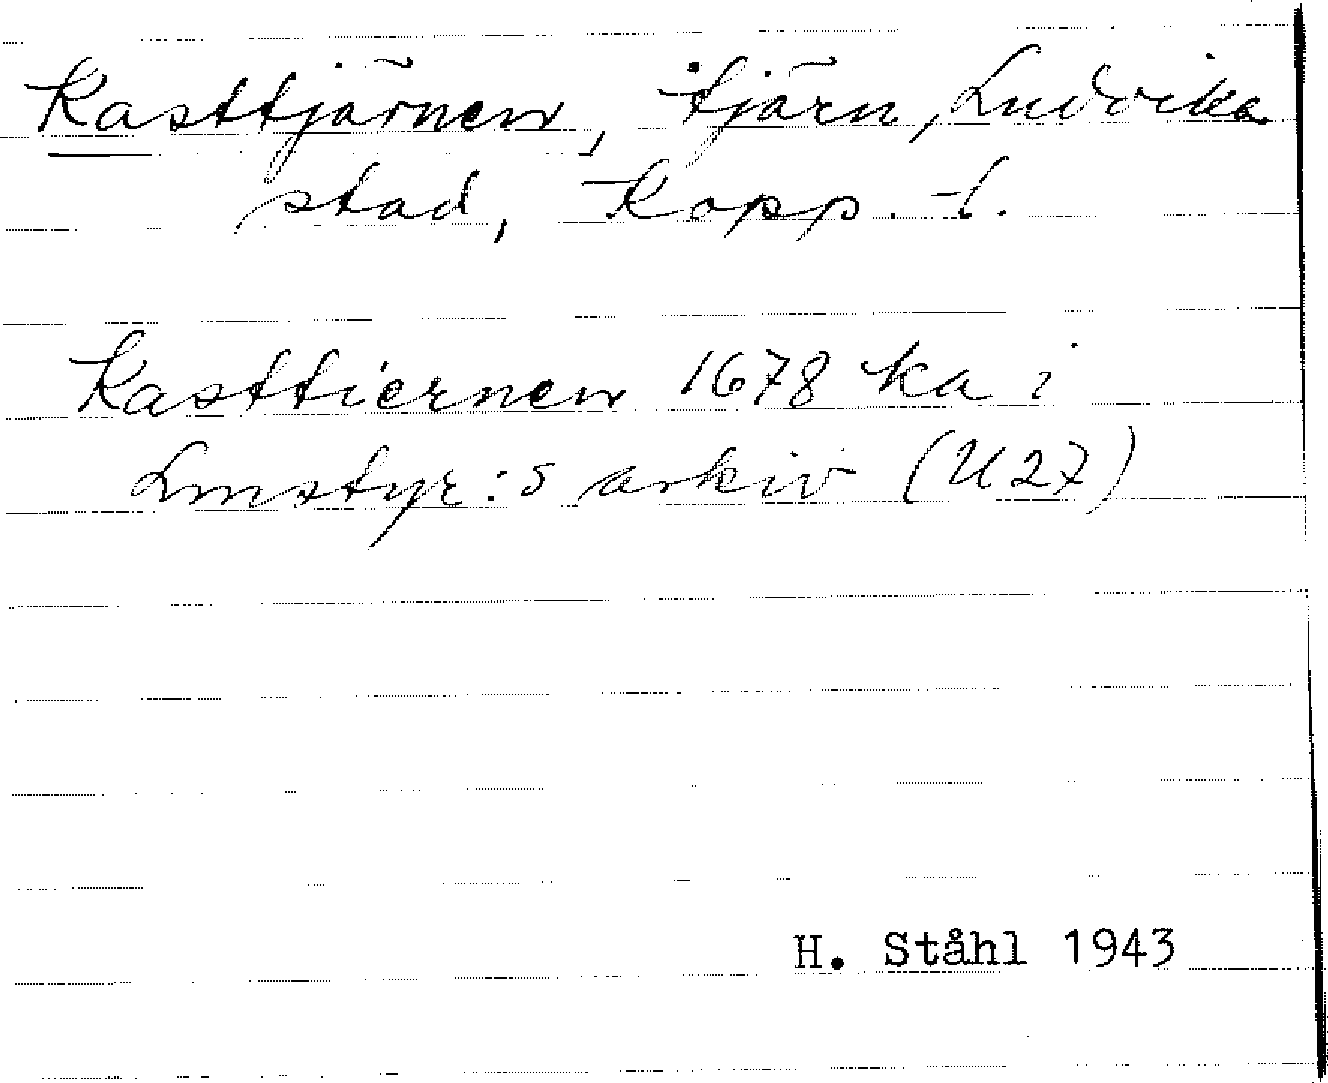 Kasttjärnen, tjärn, Ludvika
stad, Kopp. l.
Kasttiernen 1678 ka i
Lmstyr:s arkiv (U27)
H. Ståhl 1943